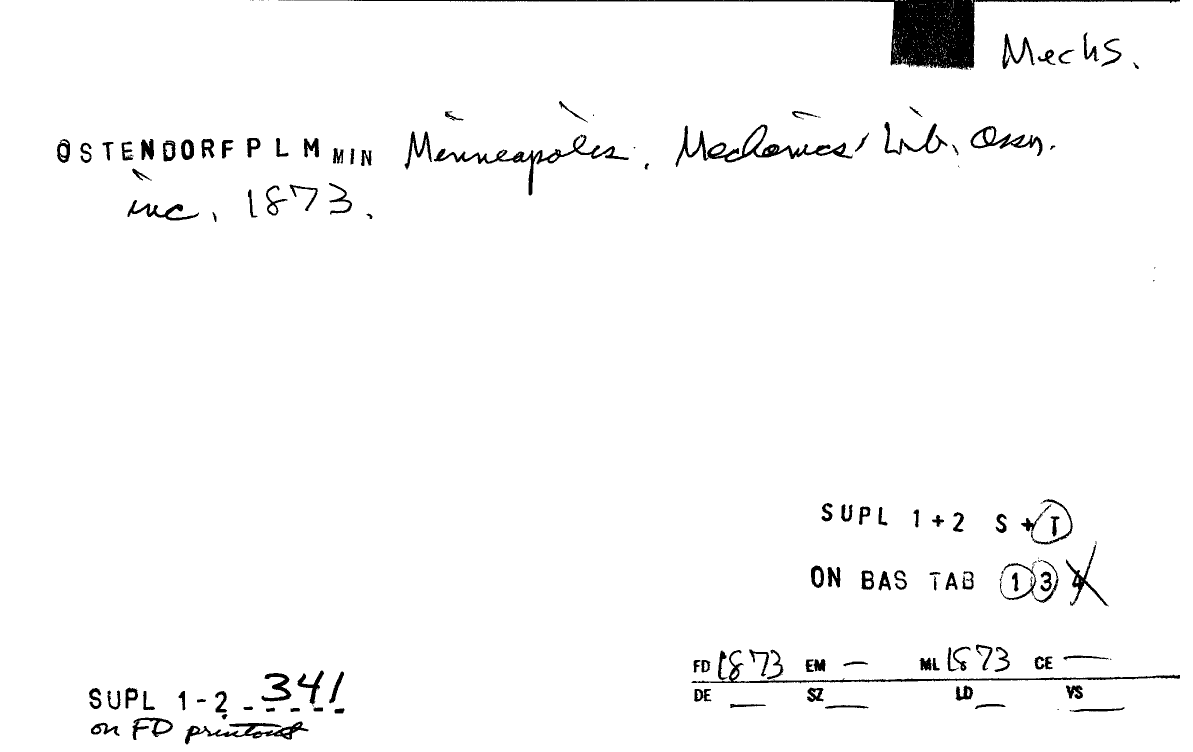 Mechs.
OSTENDORF P L M MIN Minneapolis. Mechanics' Lib. Assn.
inc. 1873.
SUPL 1+2 S+T
ON BAS TAB 1 3 4
FD 1873 EM — ML 1873 CE —
DE — SZ — LD — VS —
SUPL 1-2 - 341
on FD printout